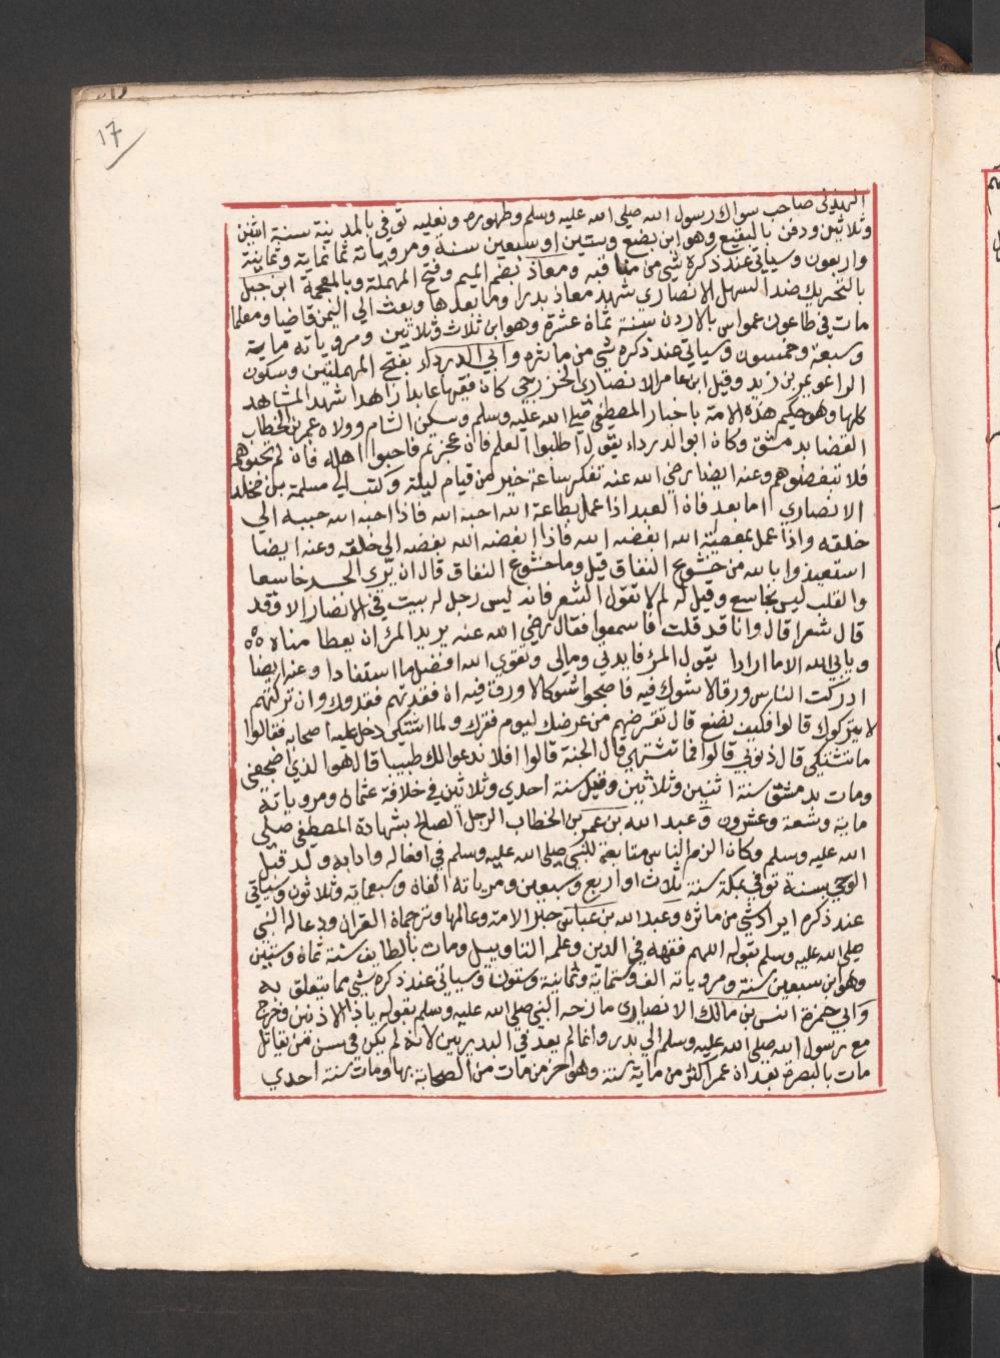 17
الهذلي صاحب سواك رسول الله صلى الله عليه وسلم وطهوره ونعليه توفي بالمدينة سنة اثنين
وثلاثين ودفن بالبقيع وهو ابن بضع وستين او سبعين سنة ومروياته ثمانماية وثمانية
واربعون وسياتي عند ذكره شي من مناقبه ومعاذ بضم الميم وفتح المهملة وبالمعجمة ابن جبل
بالتحريك ضد السهل الانصاري شهد معاذ بدرا وما بعدها وبعث الي اليمن قاضيا ومعلما
مات في طاعون عمواس بالاردن سنة ثمان عشرة وهو ابن ثلاث وثلاثين ومروياته ماية
وسبعة وخمسون وسياتي عند ذكره شي من ماثره وابي الدرداء بفتح المهملتين وسكون
الرا عويمر بن زيد وقيل ابن عامر الانصاري الخزرجي كان فقيها عابدا زاهدا شهد المشاهد
كلها وهو حكيم هذه الامة باخبار المصطفي صلى الله عليه وسلم وسكن الشام وولاه عمر بن الخطاب
القضا بدمشق وكان ابو الدرداء يقول اطلبوا العلم فان عجزتم فاحبوا اهله فان لم تحبوهم
فلا تبغضوهم وعنه ايضا رضي الله عنه تفكر ساعة خير من قيام ليلة وكتب الي مسلمة بن مخلد
الانصاري اما بعد فان العبد اذا عمل بطاعة الله احبه الله فاذا احبه الله حببه الي
خلقه واذا عمل بمعصية الله ابغضه الله فاذا ابغضه الله بغضه الي خلقه وعنه ايضا
استعيذوا بالله من خشوع النفاق قيل وما خشوع النفاق قال ان يري الجسد خاشعا
والقلب ليس بخاشع وقيل له لم لا تقول الشعر فانه ليس رجل له بيت في الانصار الا وقد
قال شعرا قال وانا قد قلت فاسمعوا فقال رضي الله عنه يريد المرء ان يعطا مناه ه ه
ويابي الله الا ما ارادا يقول المرء فايدتي ومالي وتقوي الله افضل ما استفادا وعنه ايضا
ادركت الناس ورقا لا شوك فيه فاصبحوا شوكا لا ورق فيه ان فقدتهم فقدوك وان تركتهم
لا يتركوك قالوا فكيف نصنع قال تقرضهم من عرضك ليوم فقرك ولما اشتكي دخل عليه اصحابه فقالوا
ما تشتكي قال ذنوبي قالوا فما تشتهي قال الجنة قالوا افلا ندعوا لك طبيبا قال هو الذي اضجعني
ومات بدمشق سنة اثنين وثلاثين وقيل سنة احدي وثلاثين في خلافة عثمان ومروياته
ماية وتسعة وعشرون وعبد الله بن عمر بن الخطاب الرجل الصالح بشهادة المصطفي صلى
الله عليه وسلم وكان الزم الناس متابعة للنبي صلى الله عليه وسلم في افعاله وادابه ولد قبل
الوحي بسنة توفي بمكة سنة ثلاث او اربع وسبعين ومروياته الفان وسبعماية وثلاثون وسياتي
عند ذكره ايراد شي من ماثره وعبد الله بن عباس حبر الامة وعالمها وترجمان القران ودعا له النبي
صلى الله عليه وسلم بقوله اللهم فقهه في الدين وعلمه التاويل ومات بالطايف سنة ثمان وستين
وهو ابن سبعين سنة ومروياته الف وستماية وثمانية وستون وسياتي عند ذكره شي مما يتعلق به
وابي حمزة انس بن مالك الانصاري مازحه النبي صلى الله عليه وسلم بقوله ياذا الاذنين وخرج
مع رسول الله صلى الله عليه وسلم الي بدر وانما لم يعد في البدريين لانه لم يكن في سن من يقاتل
مات بالبصرة بعد ان عمر اكثر من ماية سنة وهو اخر من مات من الصحابة بها ومات سنة احدي